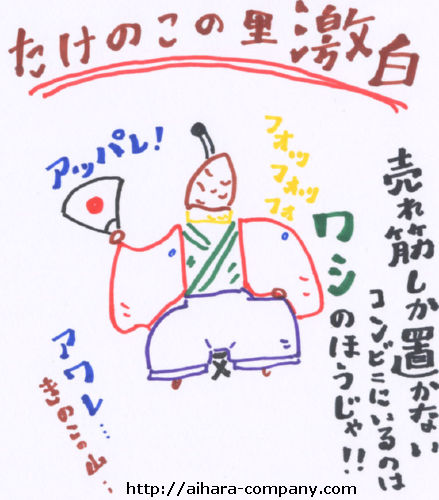 たけのこの里激白
アッパレ!
フォッ
フォッ
フォ
売れ筋しか置かない
コンビニにいるのは
ワシのほうじゃ!!
アワレ…
きのこの山…
http://aihara-company.com